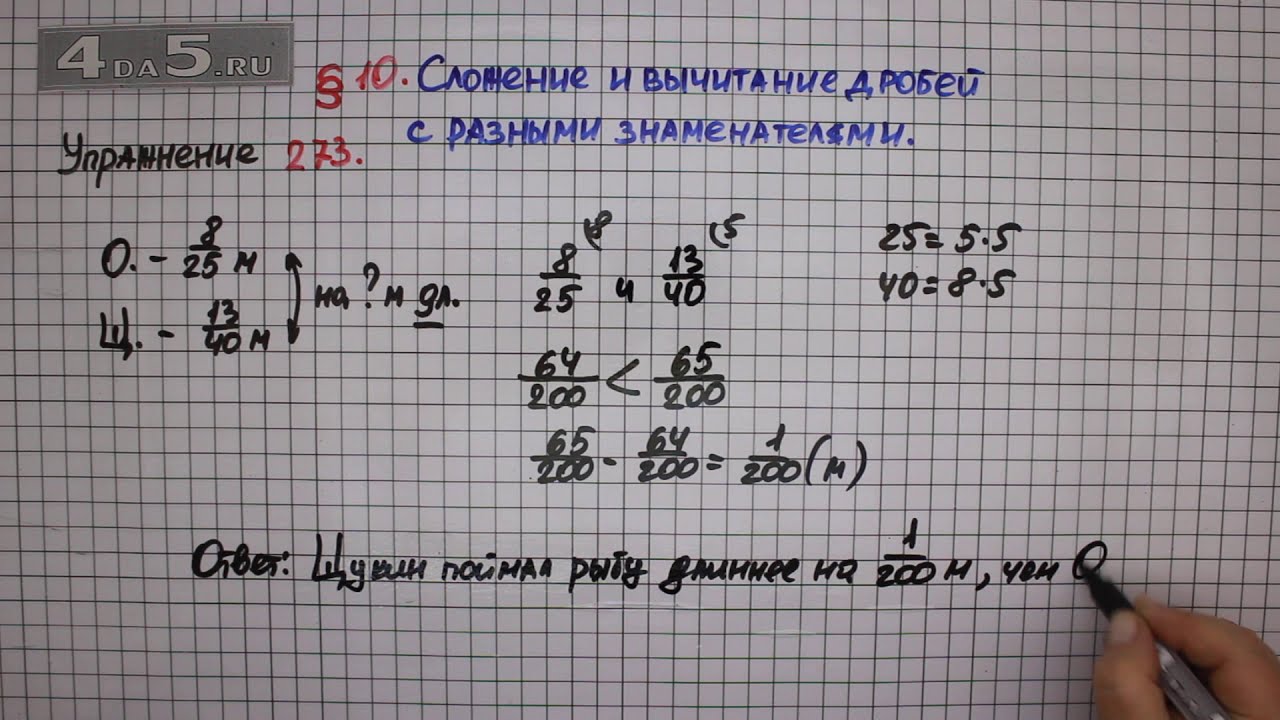 4DA5.RU
§ 10. Сложение и вычитание дробей
с разными знаменателями.
Упражнение 273.
О. - 8/25 м
Щ. - 13/40 м
на ? м дл.
8/25 (8 и 13/40 (5
64/200 < 65/200
65/200 - 64/200 = 1/200 (м)
25 = 5·5
40 = 8·5
Ответ: Щукин поймал рыбу длиннее на 1/200 м, чем О